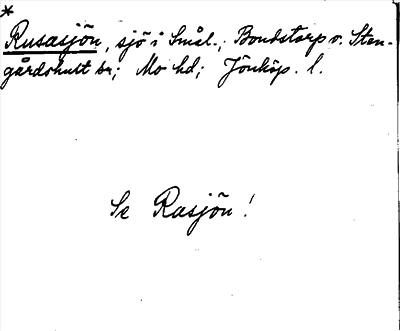 *
Rusasjön, sjö i Smål., Bondstorp o. Sten-
gårdshult sn; Mo hd; Jönköp. l.
Se Rasjön!